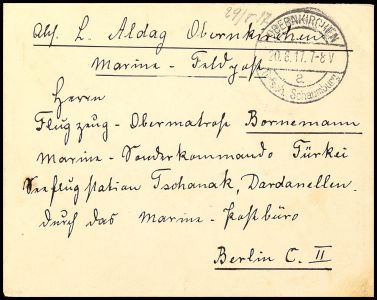 Abs. L. Aldag Obernkirchen
Marine-Feldpost
OBERNKIRCHEN
20.8.17.7-8V
a
Schaumburg
Herrn
Flugzeug-Obermatrose Bornemann
Marine-Sonderkommando Türkei
Seeflugstation Tschanak, Dardanellen.
durch das Marine-Postbüro
Berlin C. II